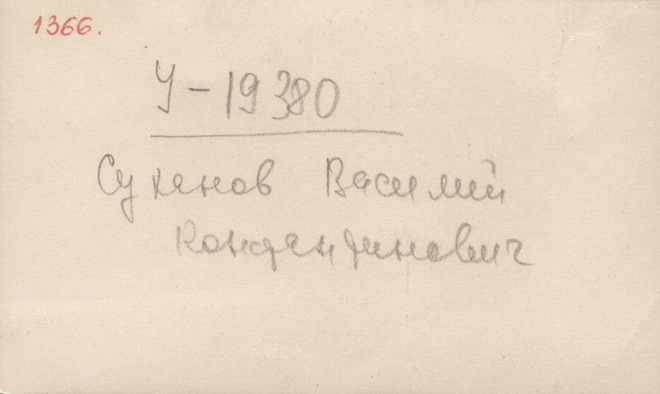 1366.
У-19380
Суханов Василий
Константинович